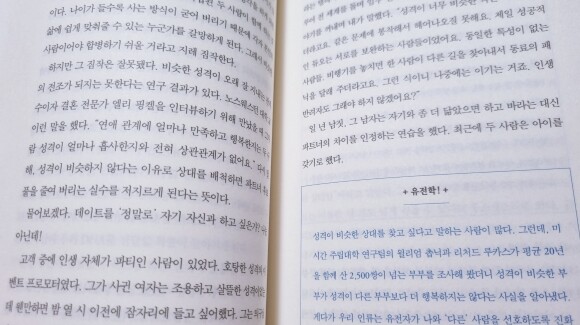 이다. 나이가 들수록 사는 방식이 굳어 버리기 때문에 각자의
삶에 쉽게 맞춰줄 수 있는 누군가를 갈망하게 된다. 그래서
사람이어야 합병하기 쉬울 거라고 지레 짐작한다.
하지만 그 짐작은 잘못됐다. 비슷한 성격이 오래 잘 지내는
의 전조가 되지는 못한다는 연구 결과가 있다. 노스웨스턴 대학
수이자 결혼 전문가 엘리 핑켈을 인터뷰하기 위해 만났을 때 그가
이런 말을 했다. “연애 관계에 얼마나 만족하고 행복한지는 두
람 성격이 얼마나 흡사한지와 전혀 상관관계가 없어요.” 다시
해, 성격이 비슷하지 않다는 이유로 상대를 배척하면 파트너
풀을 줄여 버리는 실수를 저지르게 된다는 뜻이다.
물어보겠다. 데이트를 ‘정말로’ 자기 자신과 하고 싶은가?
아닌데!
고객 중에 인생 자체가 파티인 사람이 있었다. 호탕한 성격의
벤트 프로모터였다. 그가 사귄 여자는 조용하고 살뜰한 성격
데 웬만하면 밤 열 시 이전에 잠자리에 들고 싶어했다. 그는
하며 전 세계를 돌며
기를 꺼내며 내가 말했다. “성격이 너무 비슷한
터라고요. 같은 문제에 봉착해서 헤어나오질 못해요. 제일 성공적
인 듀오는 서로를 보완하는 사람들이었어요. 동일한 특성이 없는
사람들. 비행기를 놓치면 한 사람이 다른 길을 찾아내서 동료의 패
닉을 달래 주더라고요. 그런 식이니 나중에는 이기는 거죠. 인생
반려자도 그래야 하지 않겠어요?”
일 년 남짓, 그 남자는 자기와 좀 더 닮았으면 하고 바라는 대신
파트너의 차이를 인정하는 연습을 했다. 최근에 두 사람은 아이를
갖기로 했다.
+ 유전학! +
성격이 비슷한 상대를 찾고 싶다고 말하는 사람이 많다. 그런데, 미
시간 주립대학 연구팀의 윌리엄 촙닉과 리처드 루카스가 평균 20년
을 함께 산 2,500쌍이 넘는 부부를 조사해 봤더니 성격이 비슷한 부
부가 성격이 다른 부부보다 더 행복하지는 않다는 사실을 알아냈다.
게다가 우리 인류는 유전자가 나와 ‘다른’ 사람을 선호하도록 진화